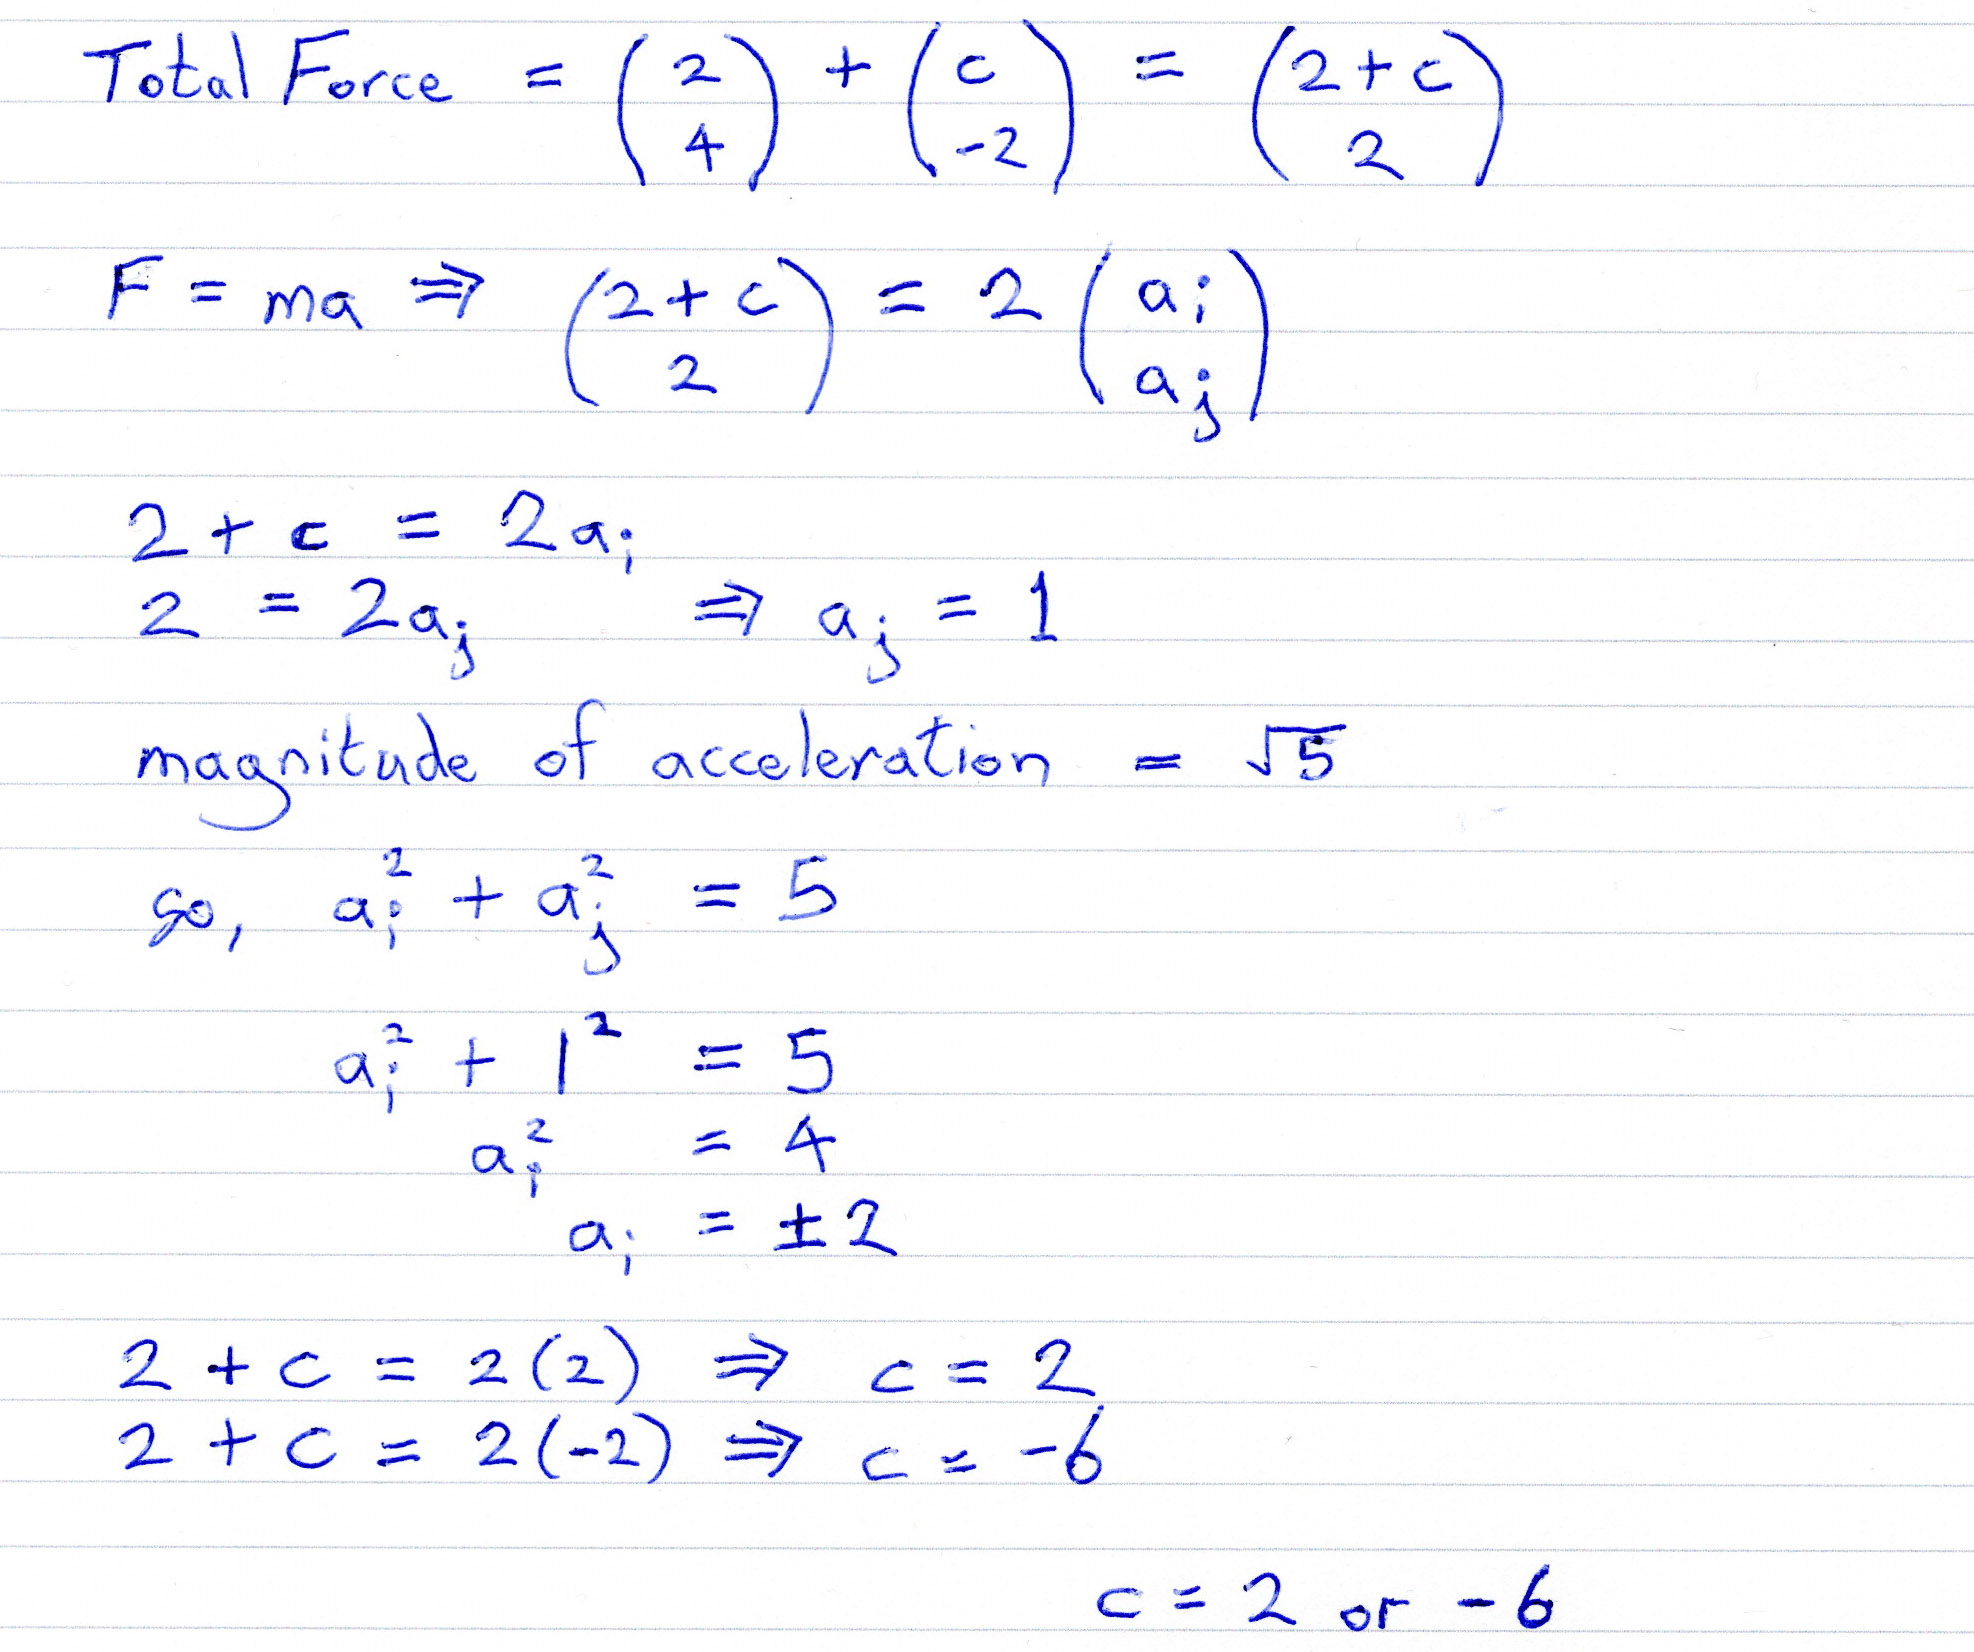 Total Force = (2 4) + (c -2) = (2+c 2)
F = ma ⇒ (2+c 2) = 2 (aᵢ aⱼ)
2 + c = 2aᵢ
2 = 2aⱼ ⇒ aⱼ = 1
magnitude of acceleration = √5
so, aᵢ² + aⱼ² = 5
aᵢ² + 1² = 5
aᵢ² = 4
aᵢ = ±2
2 + c = 2(2) ⇒ c = 2
2 + c = 2(-2) ⇒ c = -6
c = 2 or -6